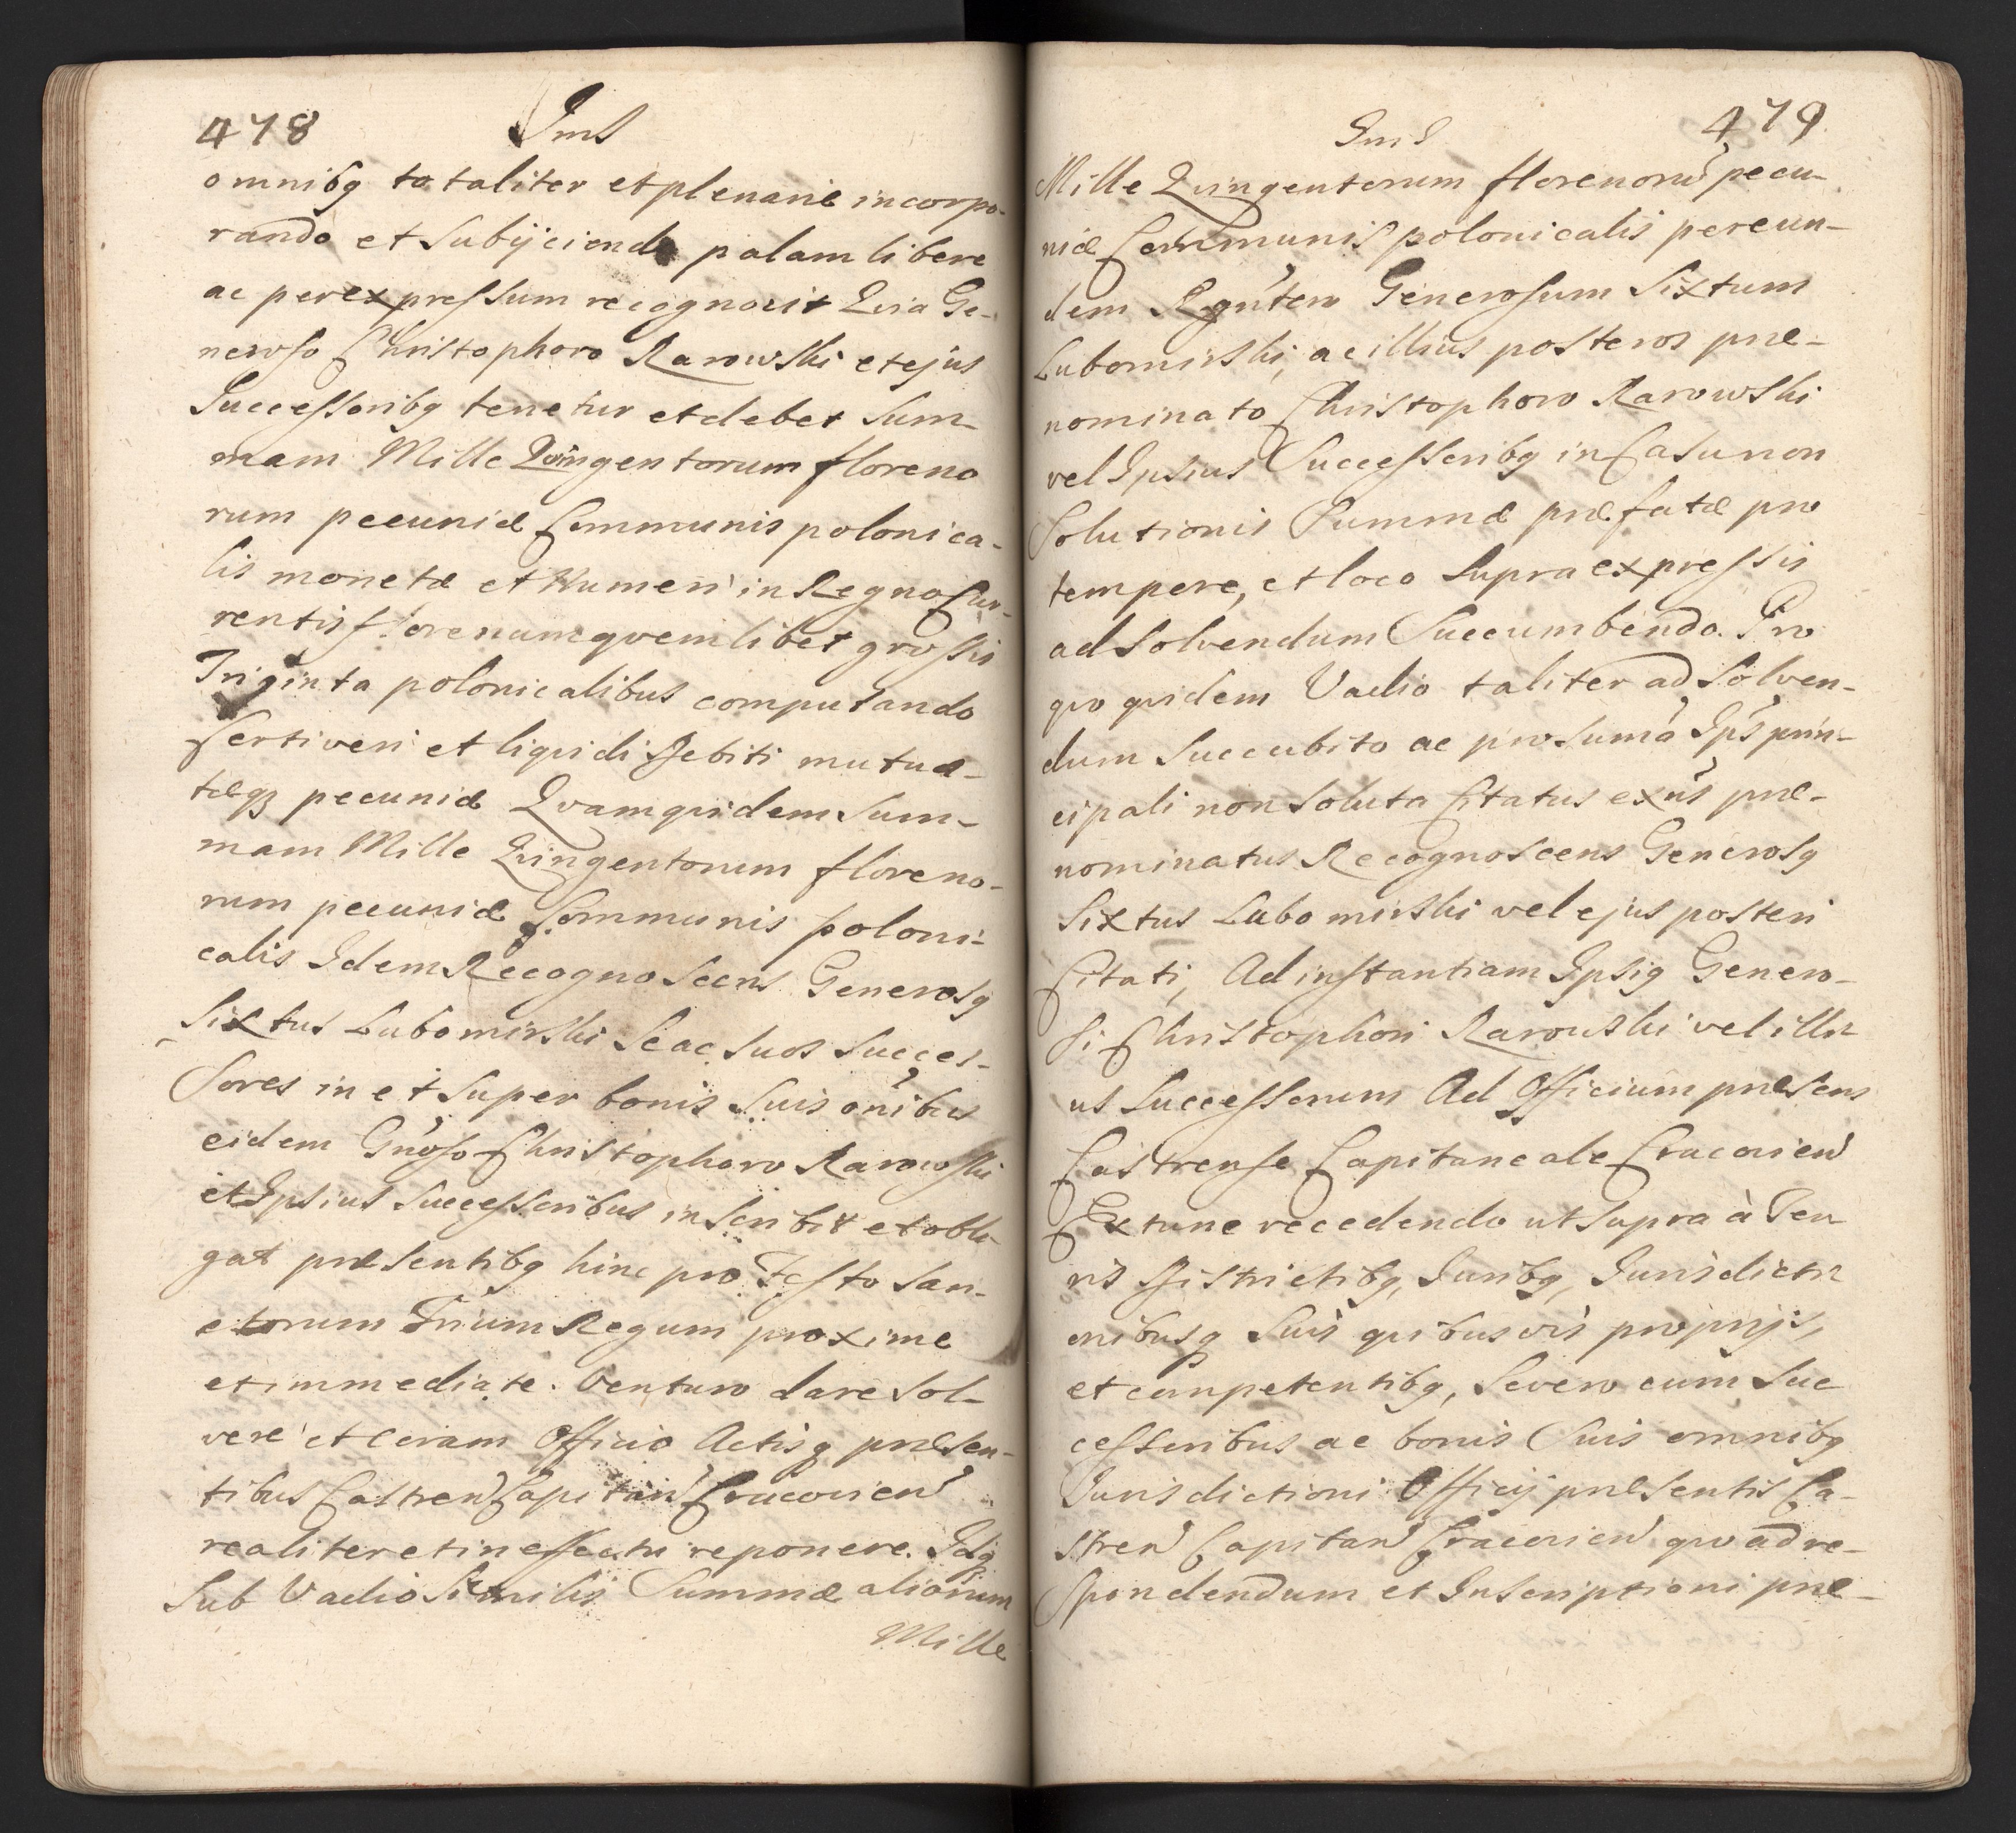 478
Ims
omnibq totaliter et plenarie incorpo-
rando et Subijciendo palam libere
ac per expressum recognovit Qvia Ge-
neroso Christophoro Rarowski et ejus
Successoribq tenetur et debet Sum-
mam Mille Qvingentorum floreno
rum pecuniæ Communis polonica-
lis monetæ et Numeri in Regno Cur-
rentis florenum qvemlibet grossis
Triginta polonicalibus computando
Certi veri et liqvidi Debiti mutua-
tæq pecuniæ Qvam qvidem Sum-
mam Mille Qvingentorum floreno-
rum pecuniæ Communis poloni-
calis Idem Recognoscens Generosq
Sixtus Lubomirski Se ac Suos Succes-
Sores in et Super bonis Suis oñibus
eidem Gñoso Christophoro Rarowski
et Ipsius Successoribus inscribit et obli-
gat præsentibq hinc pro Festo San-
ctorum Trium Regum proxime
et immediate Venturo dare Sol-
vere et Coram Officio Actisq præsen-
tibus Castren Capitan Cracovien
realiter et in effectu reponere. Idq
Sub Vadio Similis Summæ aliorum
Mille
479
Ims
Mille Qvingentorum florenorũ pecu-
niæ Communis polonicalis per eun-
dem Rgñtem Generosum Sixtum
Lubomirski, ac illius posteros præ-
nominato Christophoro Rarowski
vel Ipsius Successoribq in Casu non
Solutionis Summæ præfatæ pro
tempore, et loco Supra expressis
ad Solvendum Succumbendo. Pro
qvo qvidem Vadio taliter ad Solven-
dum Succubito ac pro Suma Ips prin-
cipali non Soluta Citatus exñs præ-
nominatus Recognoscens Generosq
Sixtus Lubomirski vel ejus posteri
Citati, Ad instantiam Ipsiq Genero-
si Christophori Rarowski vel illi-
us Successorum Ad Officium præsens
Castrense Capitaneale Cracovien
Ex tunc recedendo ut Supra à Ter
ris Districtibq, Juribq, Jurisdicti
onibusq Suis qvibusvis proprijs,
et competentibq, Se vero cum Suc
cessoribus ac bonis Suis omnibq
Jurisdictioni Officij præsentis Ca-
stren Capitan Cracovien qvo ad re-
Spondendum et Inscriptioni præ-